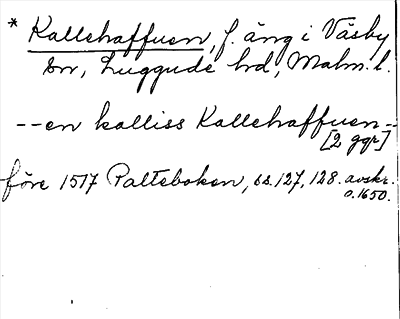 * Kallehaffuen, f. äng i Väsby
sn, Luggude hd, Malm. l.
-- en kalliss Kallehaffuen --
[2 ggr]
före 1517 Palteboken, ss. 127, 128. avskr.
o. 1650.